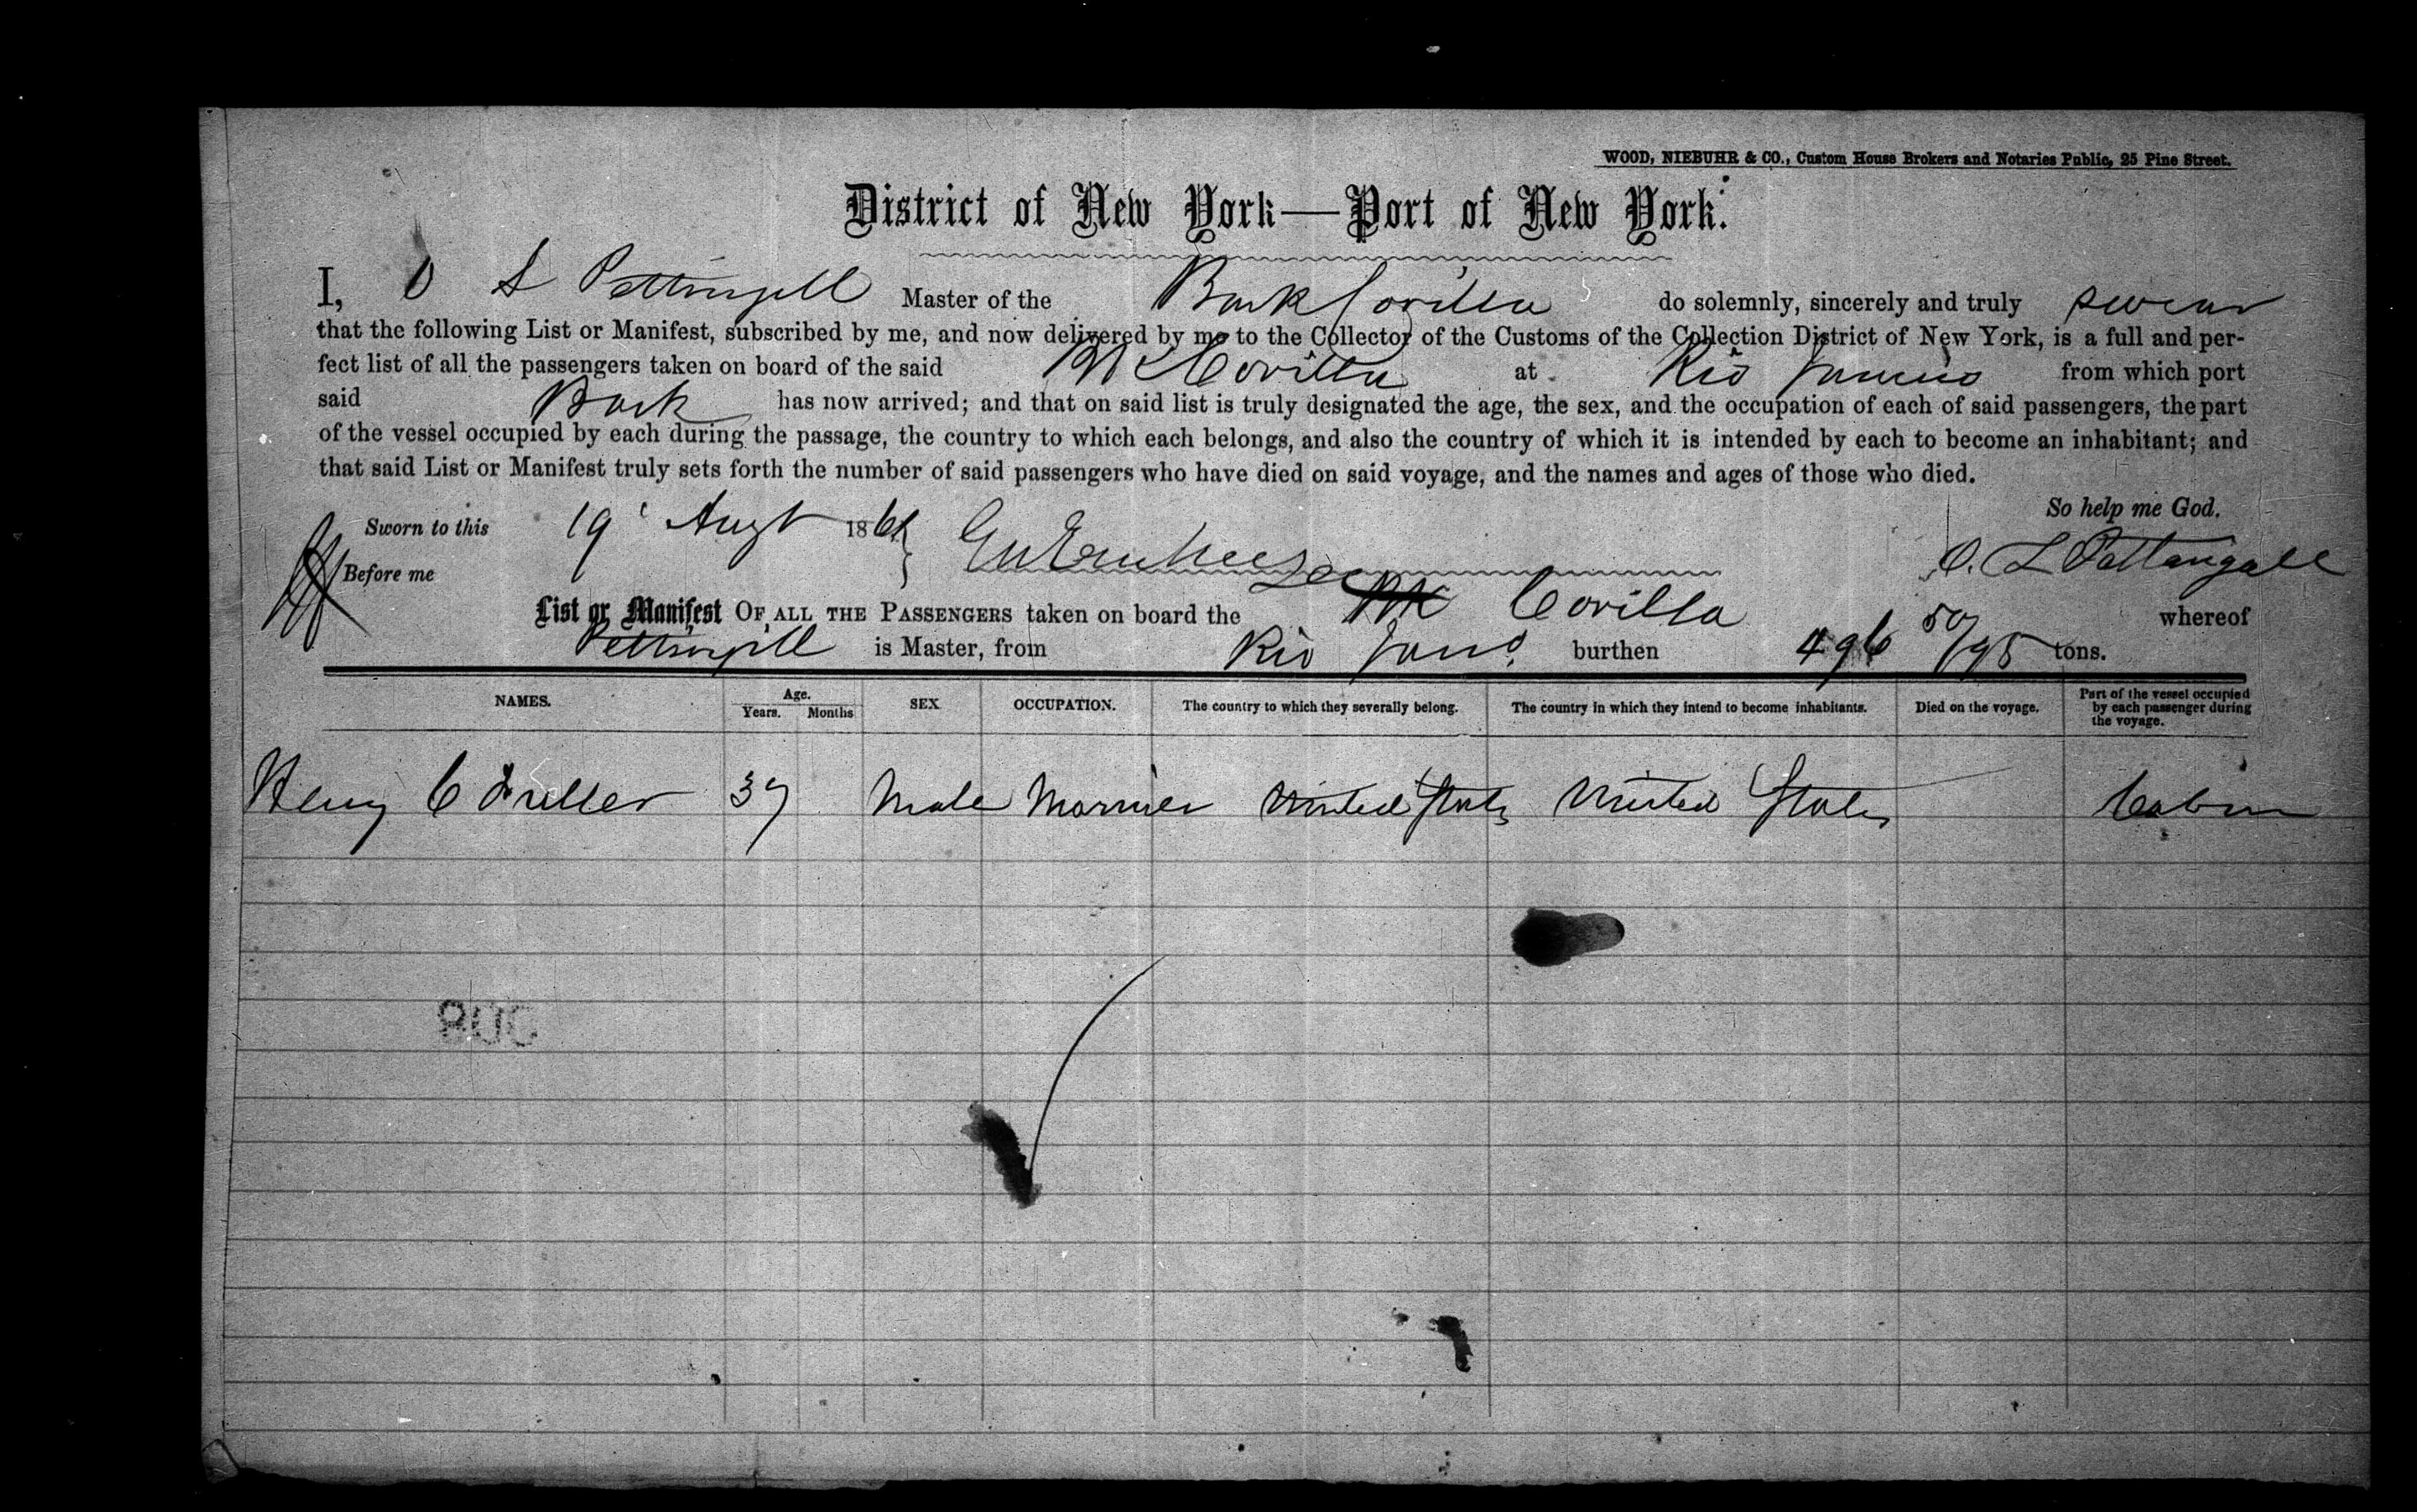 WOOD, NIEBUHR & CO., Custom House Brokers and Notaries Public, 25 Pine Street.
District of New York—Port of New York.
I, O L Pettingill Master of the Bark Corilla do solemnly, sincerely and truly swear
that the following List or Manifest, subscribed by me, and now delivered by me to the Collector of the Customs of the Collection District of New York, is a full and per-
fect list of all the passengers taken on board of the said Bk Corilla at Rio Janeiro from which port
said Bark has now arrived; and that on said list is truly designated the age, the sex, and the occupation of each of said passengers, the part
of the vessel occupied by each during the passage, the country to which each belongs, and also the country of which it is intended by each to become an inhabitant; and
that said List or Manifest truly sets forth the number of said passengers who have died on said voyage, and the names and ages of those who died.
So help me God.
Sworn to this 19 Augt 186
Before me
O. L Pattangall
List or Manifest OF ALL THE PASSENGERS taken on board the Bk Corilla whereof
Pettingill is Master, from Rio Jano. burthen 496 50/95 tons.
NAMES. Age. Years. Months SEX OCCUPATION. The country to which they severally belong. The country in which they intend to become inhabitants. Died on the voyage. Part of the vessel occupied by each passenger during the voyage.
Henry C Fuller 37 Male Marrier United States United States Cabin